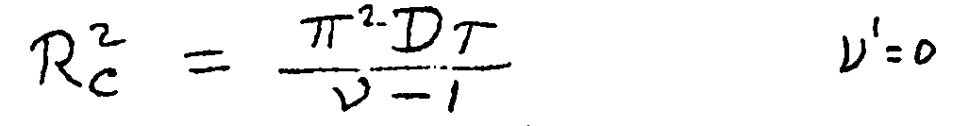 R_c^2 = \frac{π^2 D τ}{ν - 1}    ν' = 0